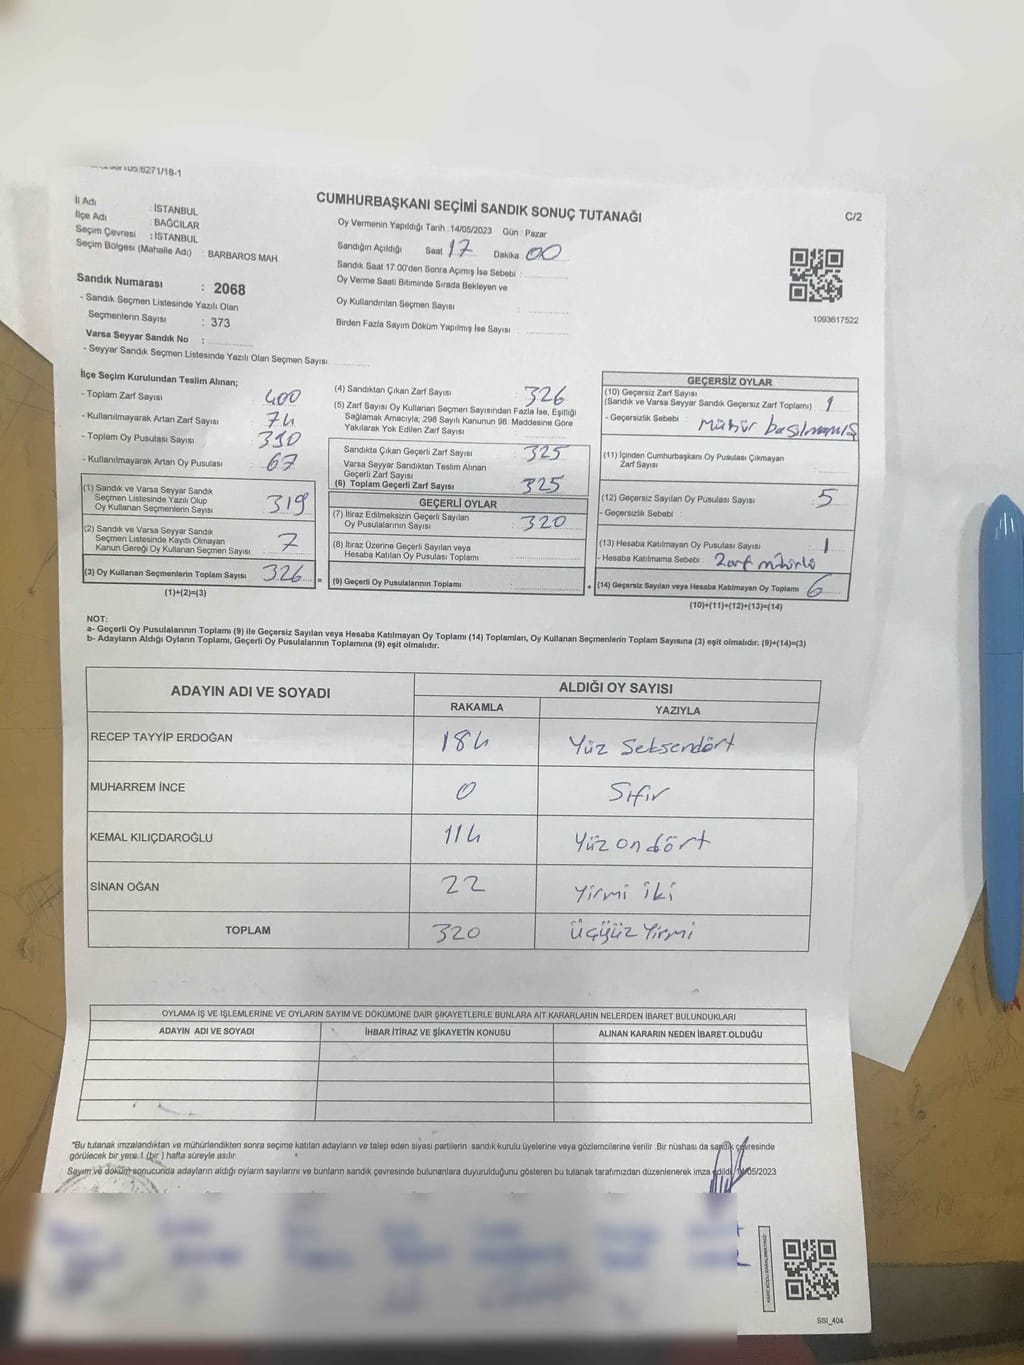 CUMHURBAŞKANI SEÇİMİ SANDIK SONUÇ TUTANAĞI
C/2
İl Adı : İSTANBUL
İlçe Adı : BAĞCILAR
Seçim Çevresi : İSTANBUL
Seçim Bölgesi (Mahalle Adı) : BARBAROS MAH.
Oy Vermenin Yapıldığı Tarih : 14/05/2023 Gün : Pazar
Sandığın Açıldığı Saat 17 Dakika 00
Sandık Saat 17.00'den Sonra Açımış İse Sebebi :
Oy Verme Saati Bitiminde Sırada Bekleyen ve
Oy Kullandırılan Seçmen Sayısı :
Birden Fazla Sayım Döküm Yapılmış İse Sayısı :
1093617522
Sandık Numarası : 2068
- Sandık Seçmen Listesinde Yazılı Olan
Seçmenlerin Sayısı : 373
Varsa Seyyar Sandık No :
- Seyyar Sandık Seçmen Listesinde Yazılı Olan Seçmen Sayısı
İlçe Seçim Kurulundan Teslim Alınan;
- Toplam Zarf Sayısı 400
- Kullanılmayarak Artan Zarf Sayısı 74
- Toplam Oy Pusulası Sayısı 390
- Kullanılmayarak Artan Oy Pusulası 67
(1) Sandık ve Varsa Seyyar Sandık
Seçmen Listesinde Yazılı Olup
Oy Kullanan Seçmenlerin Sayısı 319
(2) Sandık ve Varsa Seyyar Sandık
Seçmen Listesinde Kayıtlı Olmayan
Kanun Gereği Oy Kullanan Seçmen Sayısı 7
(3) Oy Kullanan Seçmenlerin Toplam Sayısı 326 =
(1)+(2)=(3)
(4) Sandıktan Çıkan Zarf Sayısı 326
(5) Zarf Sayısı Oy Kullanan Seçmen Sayısından Fazla İse, Eşitliği
Sağlamak Amacıyla, 298 Sayılı Kanunun 98. Maddesine Göre
Yakılarak Yok Edilen Zarf Sayısı
Sandıkta Çıkan Geçerli Zarf Sayısı 325
Varsa Seyyar Sandıktan Teslim Alınan
Geçerli Zarf Sayısı
(6) Toplam Geçerli Zarf Sayısı 325
GEÇERLİ OYLAR
(7) İtiraz Edilmeksizin Geçerli Sayılan
Oy Pusulalarının Sayısı 320
(8) İtiraz Üzerine Geçerli Sayılan veya
Hesaba Katılan Oy Pusulası Toplamı
(9) Geçerli Oy Pusulalarının Toplamı +
GEÇERSİZ OYLAR
(10) Geçersiz Zarf Sayısı
(Sandık ve Varsa Seyyar Sandık Geçersiz Zarf Toplamı) 1
- Geçersizlik Sebebi : Mühür basılmamış
(11) İçinden Cumhurbaşkanı Oy Pusulası Çıkmayan
Zarf Sayısı
(12) Geçersiz Sayılan Oy Pusulası Sayısı 5
- Geçersizlik Sebebi :
(13) Hesaba Katılmayan Oy Pusulası Sayısı 1
- Hesaba Katılmama Sebebi : Zarf mühürlü
(14) Geçersiz Sayılan veya Hesaba Katılmayan Oy Toplamı 6
(10)+(11)+(12)+(13)=(14)
NOT:
a- Geçerli Oy Pusulalarının Toplamı (9) ile Geçersiz Sayılan veya Hesaba Katılmayan Oy Toplamı (14) Toplamları, Oy Kullanan Seçmenlerin Toplam Sayısına (3) eşit olmalıdır. (9)+(14)=(3)
b- Adayların Aldığı Oyların Toplamı, Geçerli Oy Pusulalarının Toplamına (9) eşit olmalıdır.
ADAYIN ADI VE SOYADI ALDIĞI OY SAYISI
RAKAMLA YAZIYLA
RECEP TAYYİP ERDOĞAN 184 Yüz Seksendört
MUHARREM İNCE 0 Sıfır
KEMAL KILIÇDAROĞLU 114 Yüz ondört
SİNAN OĞAN 22 Yirmi iki
TOPLAM 320 Üçyüz Yirmi
OYLAMA İŞ VE İŞLEMLERİNE VE OYLARIN SAYIM VE DÖKÜMÜNE DAİR ŞİKAYETLERLE BUNLARA AİT KARARLARIN NELERDEN İBARET BULUNDUKLARI
ADAYIN ADI VE SOYADI İHBAR İTİRAZ VE ŞİKAYETİN KONUSU ALINAN KARARIN NEDEN İBARET OLDUĞU
*Bu tutanak imzalandıktan ve mühürlendikten sonra seçime katılan adayların ve talep eden siyasi partilerin sandık kurulu üyelerine veya gözlemcilerine verilir. Bir nüshası da sandık çevresinde
görülecek bir yere 1 (bir) hafta süreyle asılır.
Sayım ve döküm sonucunda adayların aldığı oyların sayılarını ve bunların sandık çevresinde bulunanlara duyurulduğunu gösteren bu tutanak tarafımızdan düzenlenerek imza edildi. 14/05/2023
KARE KODU KARALAMAYINIZ!
SSI_404